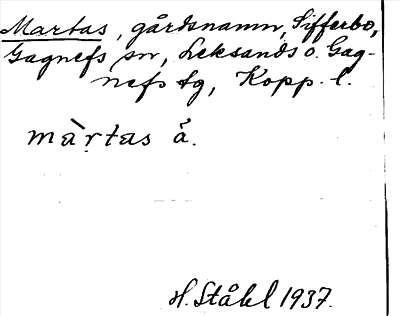 Martas, gårdsnamn, Sifferbo,
Gagnefs sn, Leksands o. Gag-
nefs tg, Kopp. l.
mà̩rtas å̀.
H. Ståhl 1937.